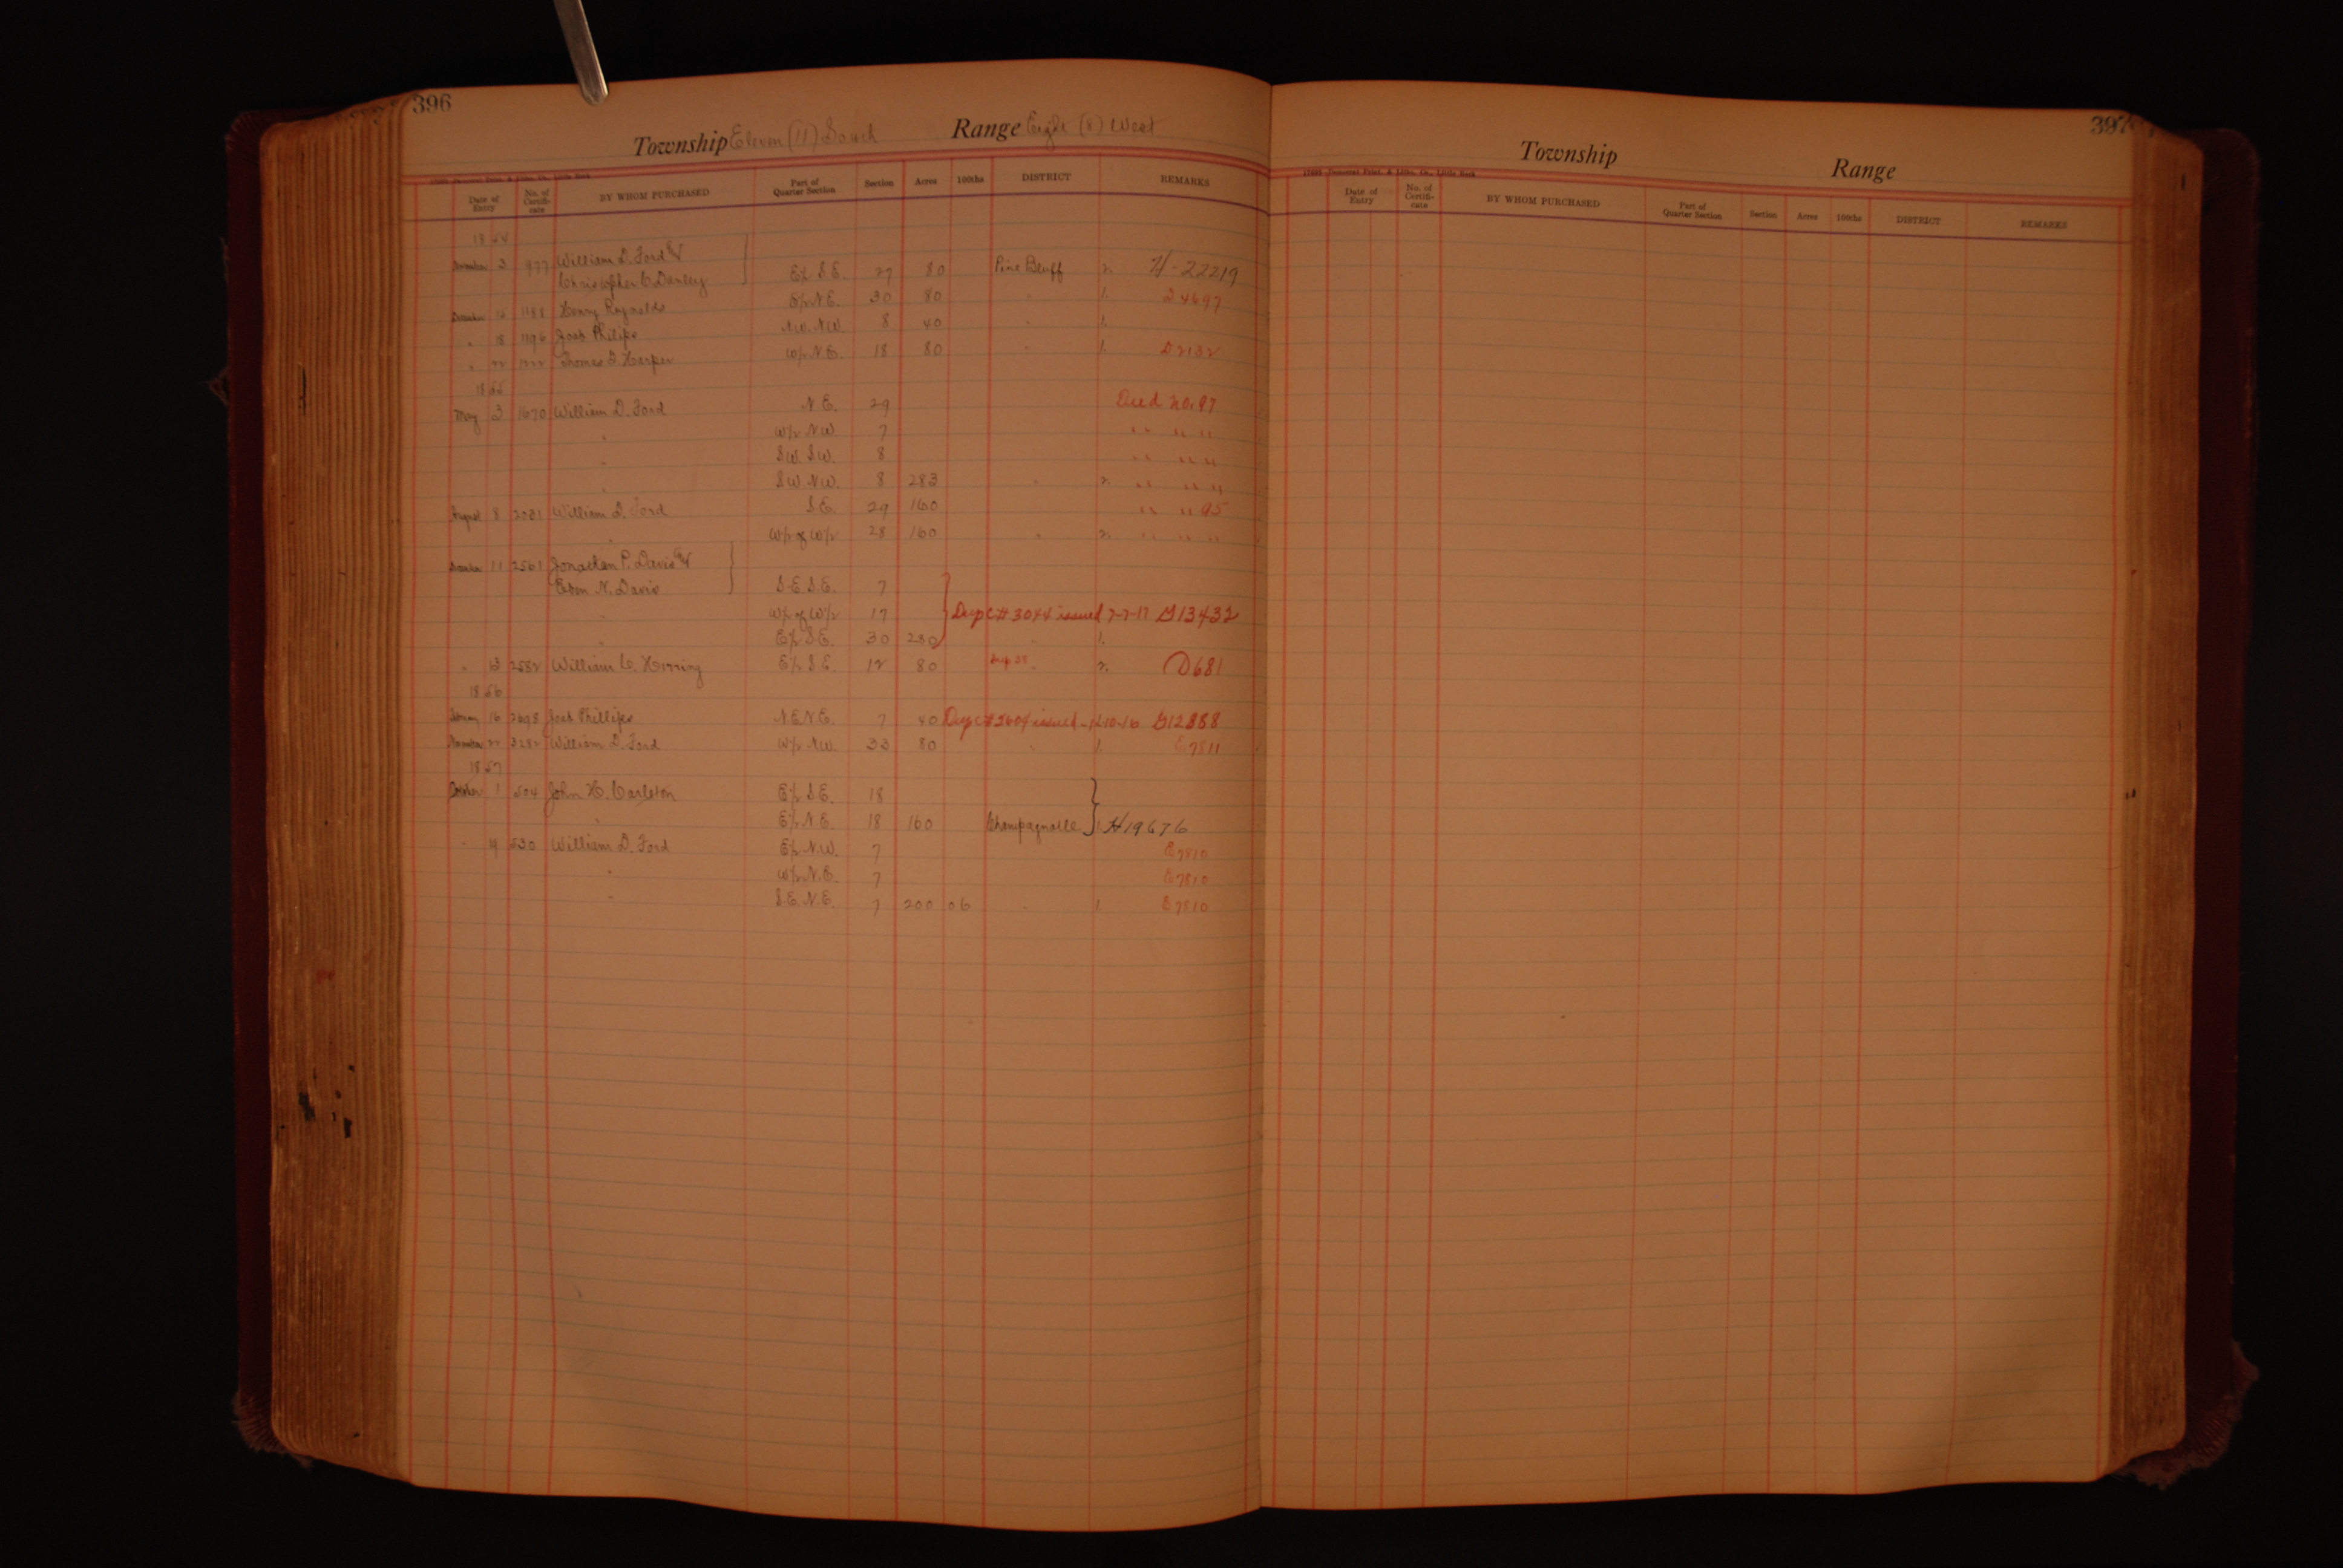 396
Township Eleven (11) South Range Eight (8) West
Date of Entry No. of Certifi-cate BY WHOM PURCHASED Part of Quarter Section Section Acres 100ths DISTRICT REMARKS
1854
3 977 William D. Ford &
Christopher C Danley E½ S.E. 27 80 Pine Bluff 2. H-22219
E½ N.E. 30 80 " 1. D4697
December 15 1188 Henry Reynolds
N.W. N.W. 8 40 " 1.
" 18 1196 Joab Philips
W½ N.E. 18 80 " 1. D2132
" 22 1222 Thomas D. Harper
1855
May 3 1670 William D. Ford N.E. 29 Deed No. 97
" W½ N.W. 7 " " "
" S.W. S.W. 8 " " "
" S.W. N.W. 8 283 " 2. " " "
August 8 2031 William D. Ford S.E. 29 160 " " 95
" W½ of W½ 28 160 " 2. " " "
11 2561 Jonathan P. Davis &
N. Davis S.E. S.E. 7
" W½ of W½ 17 Dup C# 3044 issued 7-7-17 G13432
" E½ S.E. 30 280 " 1.
" 13 2582 William C. Herring E½ S.E. 12 80 " 2. D681
1856
February 16 2698 Joab Phillips N.E. N.E. 7 40 Dup C# 3604 issued -12-10-16 G12888
November 22 3282 William D. Ford W½ N.W. 33 80 " 1. E7811
1857
October 1 504 John H. Carleton E½ S.E. 18
" E½ N.E. 18 160 Champagnolle 1. H19676
" 9 530 William D. Ford E½ N.W. 7 E7810
" W½ N.E. 7 E7810
" S.E. N.E. 7 200 06 " 1. E7810
397
Township Range
Date of Entry No. of Certifi-cate BY WHOM PURCHASED Part of Quarter Section Section Acres 100ths DISTRICT REMARKS